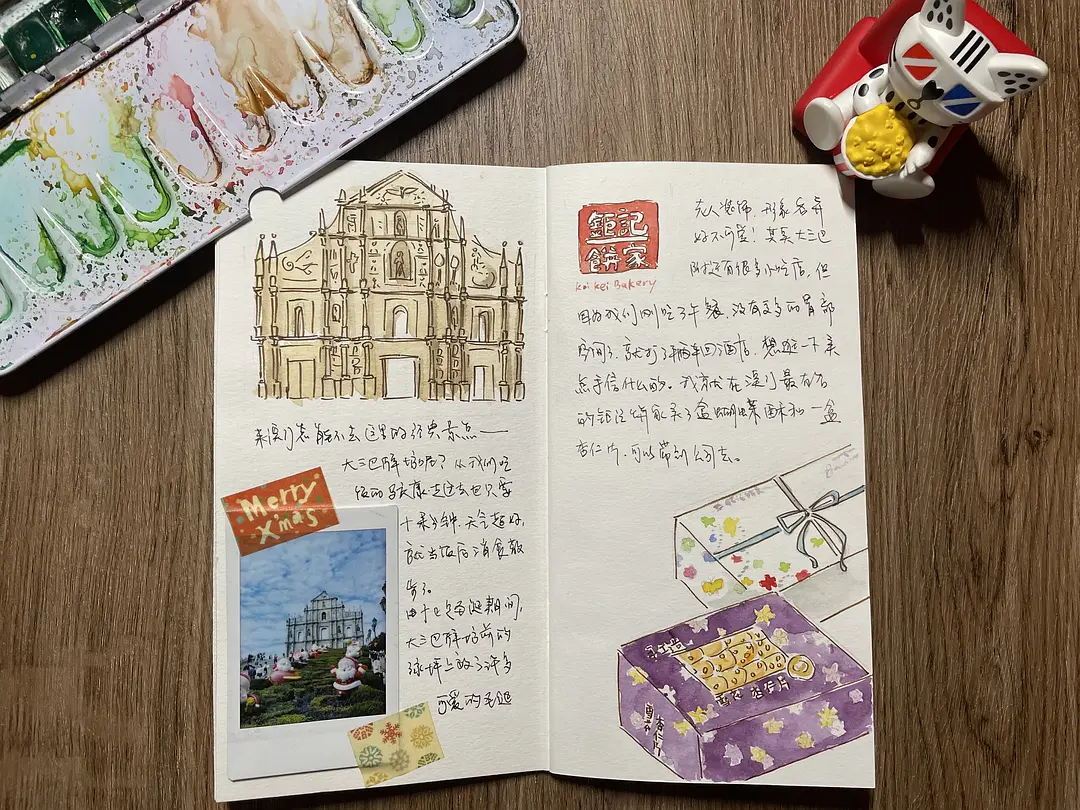 来澳门怎能不去这里的经典景点——
大三巴牌坊呢？从我们吃
饭的走过去也只需
十来分钟，天气超好，
就当饭后消食散
步了。
由于已是圣诞期间，
大三巴牌坊前的
草坪上放了许多
可爱的圣诞
Merry
X'mas
鉅記
餅家
Koi Kei Bakery
老人装饰，形象各异
好不可爱！其实大三巴
附近还有很多小吃店，但
因为我们刚吃了午餐，没有更多的胃部
空间了，就打了辆车回酒店。想
点手信什么的。我就在澳门最有名
的钜记饼家买了盒蝴蝶酥和一盒
杏仁片，可以带到公司去。
杏仁片